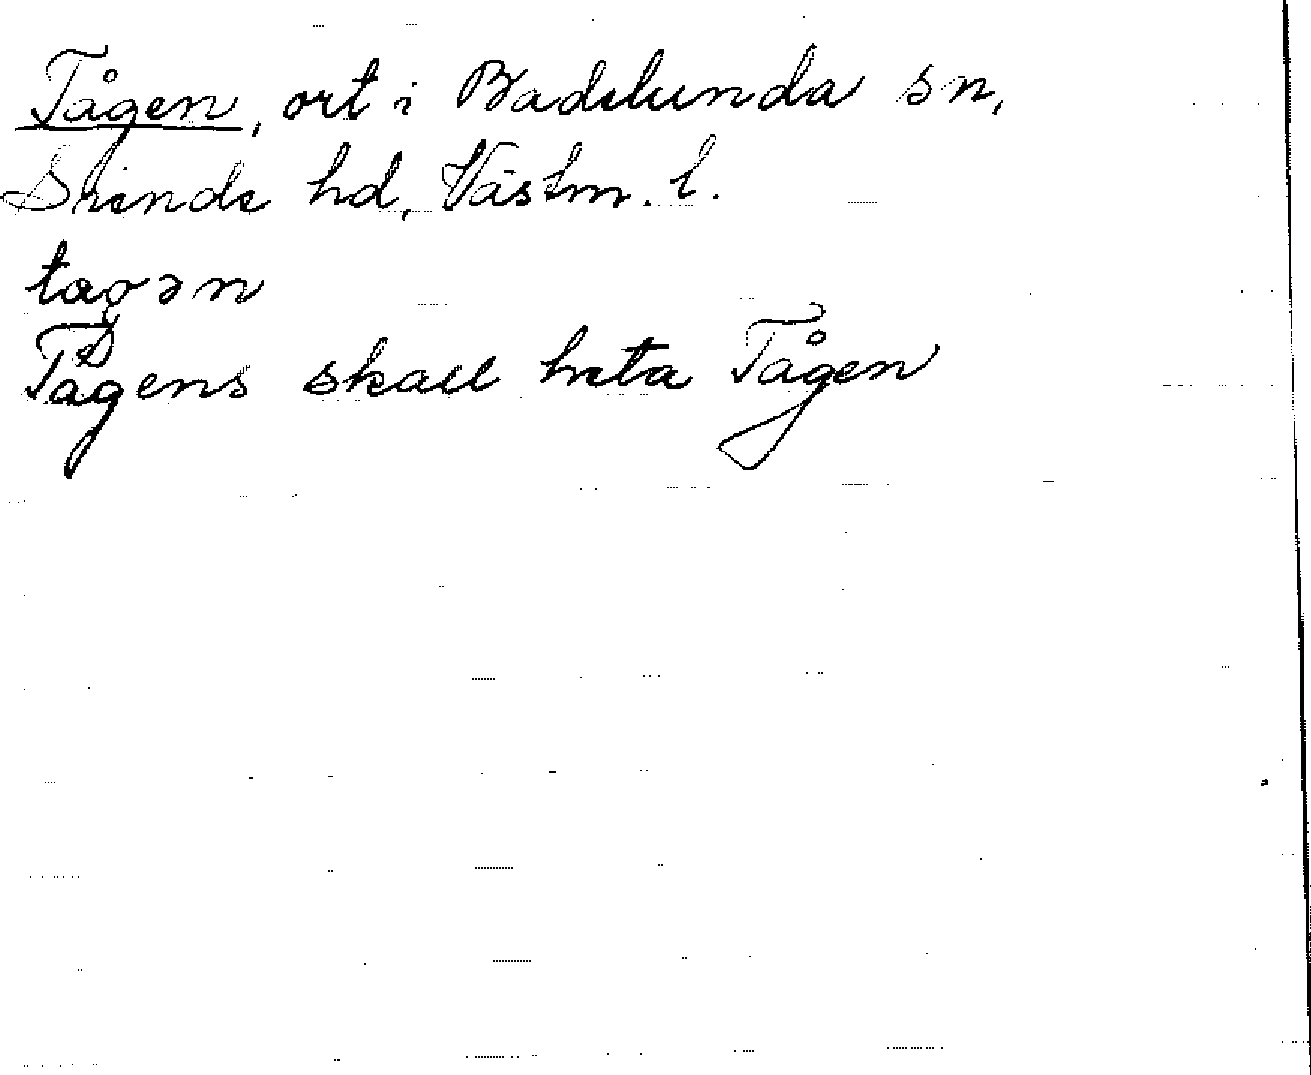 Tågen, ort i Badelunda sn,
Siende hd, Västm. l.
tagən
Tågens skall heta Tågen